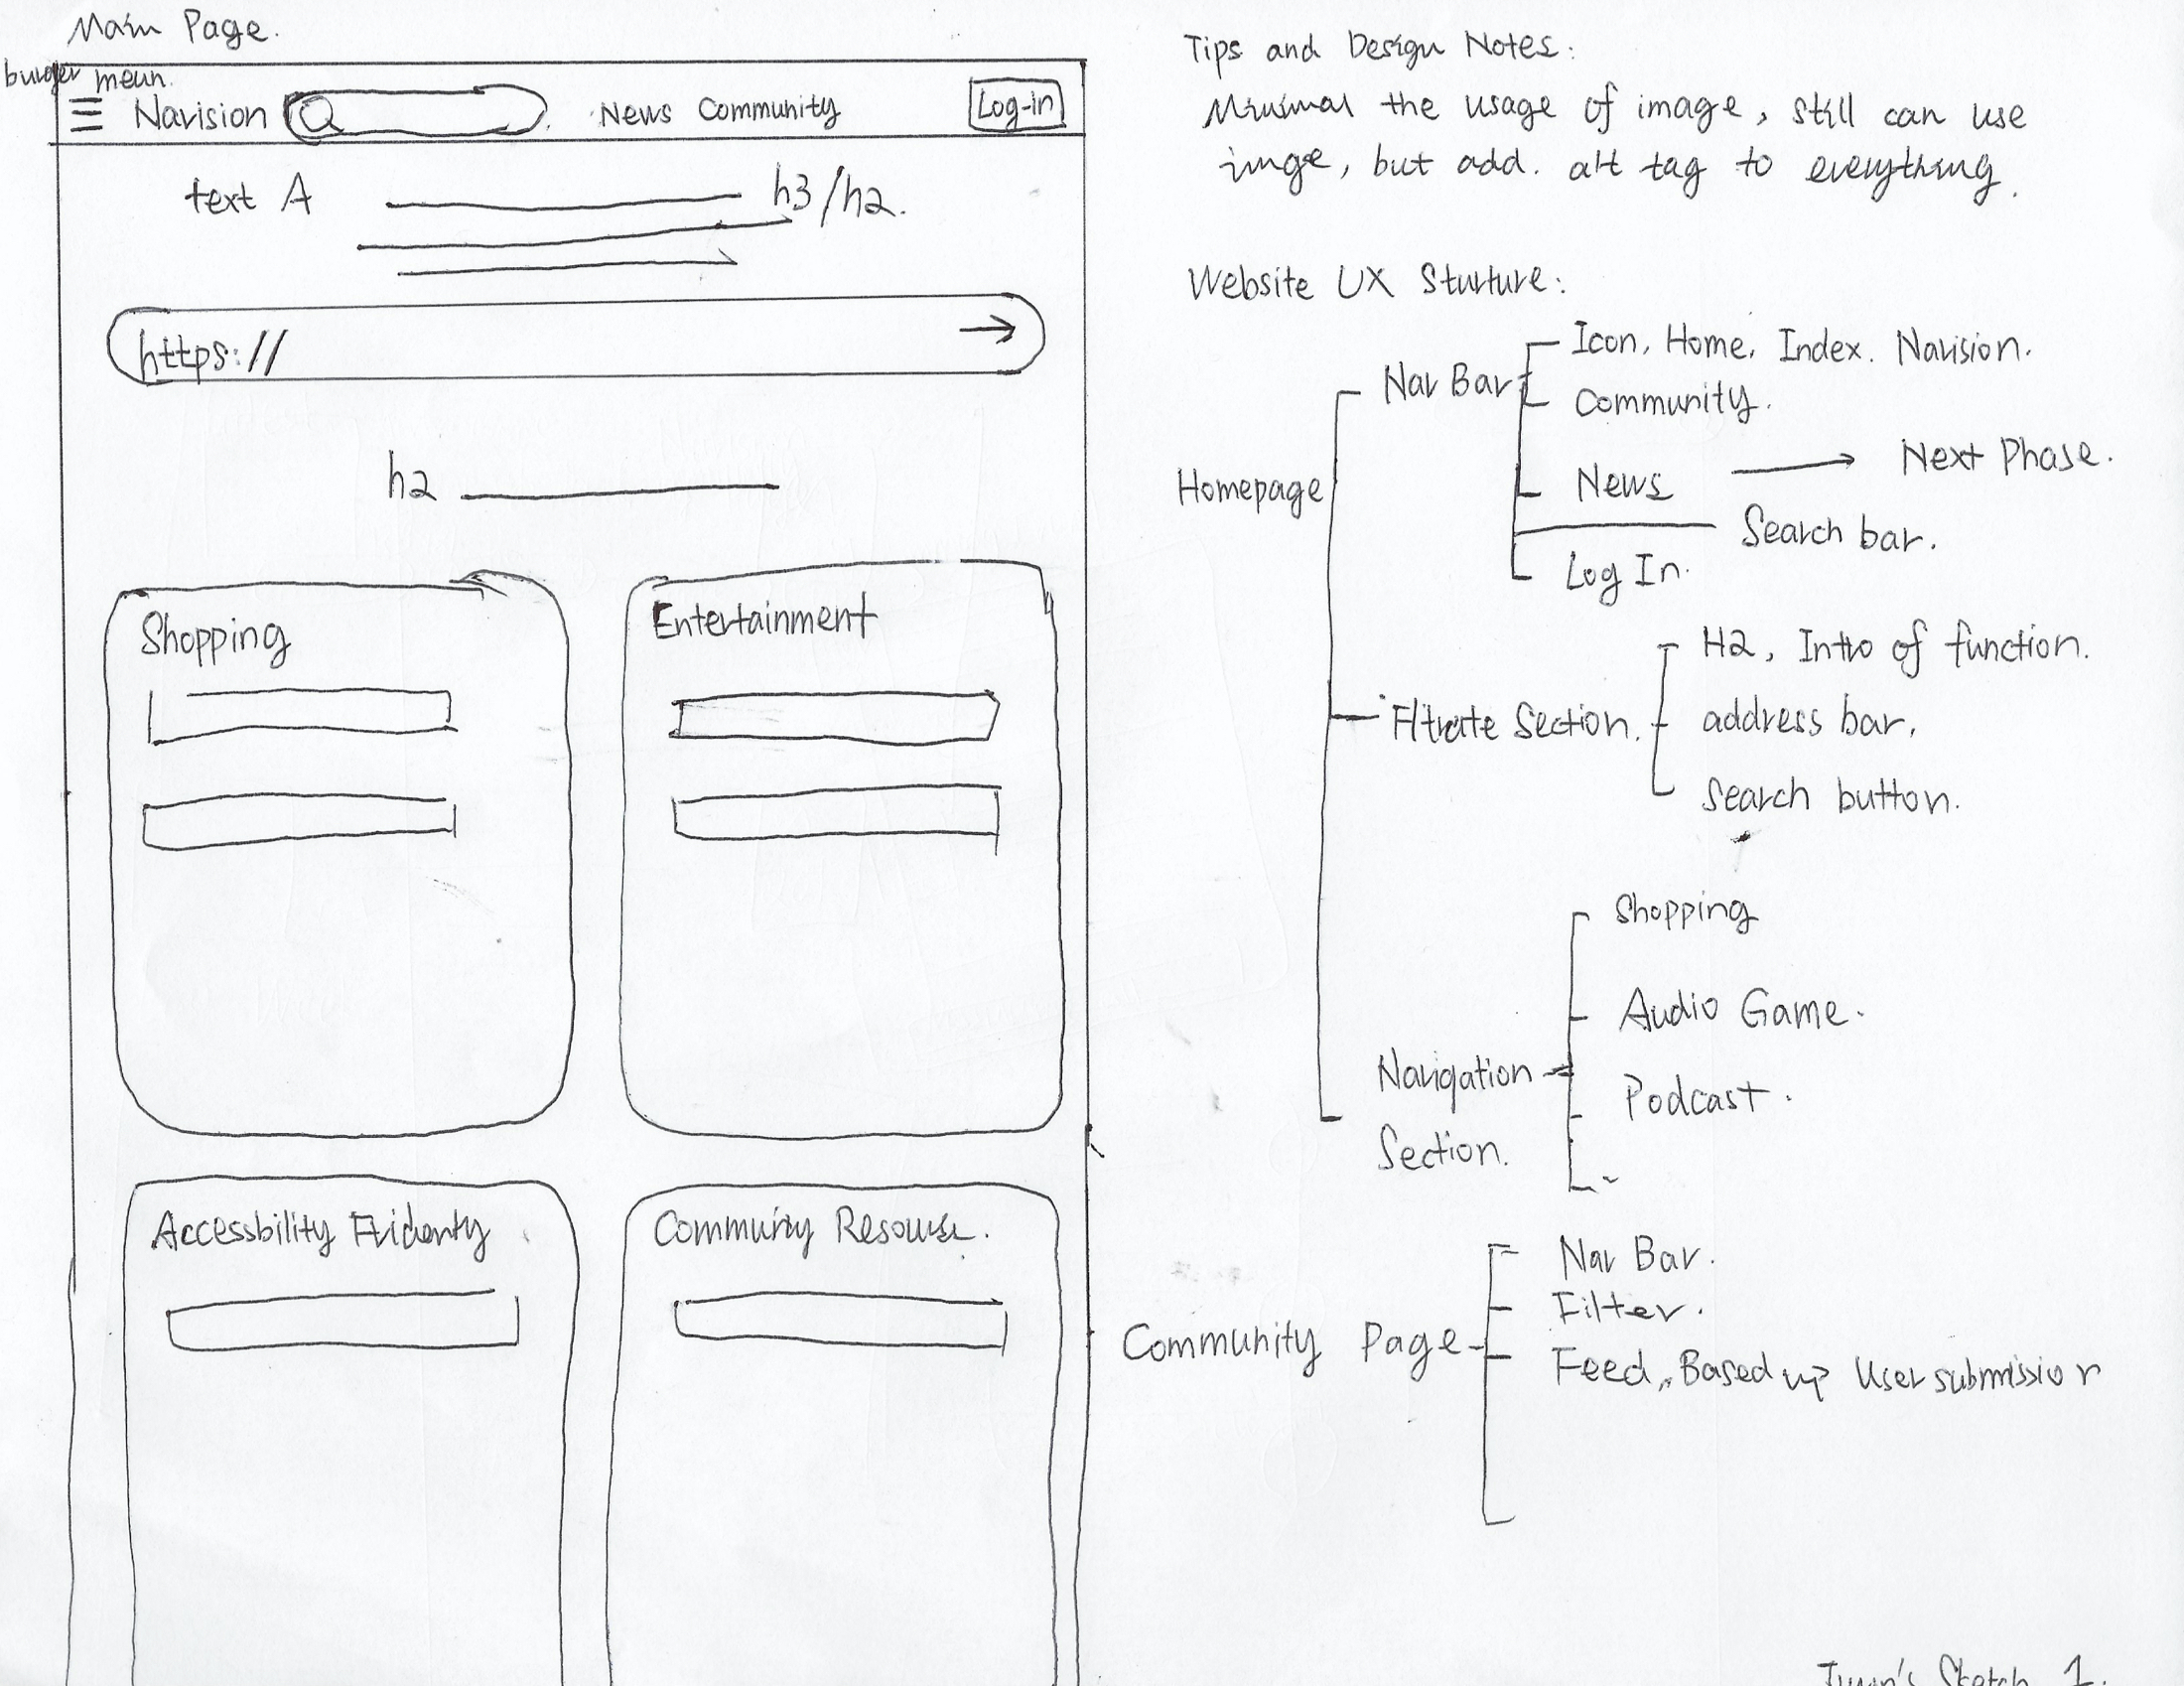 Main Page.
burger meun.
Navision
News Community
Log-in
text A
h3/h2.
https://
h2
Shopping
Entertainment
Accessbility
Community
Tips and Design Notes:
Minimal the usage of image, still can use
imge, but add. alt tag to everything.
Website UX Sturture:
Homepage
Nav Bar
Icon, Home, Index. Navision.
Community.
News
Next Phase.
Search bar.
Log In.
Section.
H2, Intro of function.
address bar,
search button.
Navigation
Section.
Shopping
Audio Game.
Podcast.
Community Page
Nav Bar.
Filter.
Feed, Based up User submission
Sketch 1.